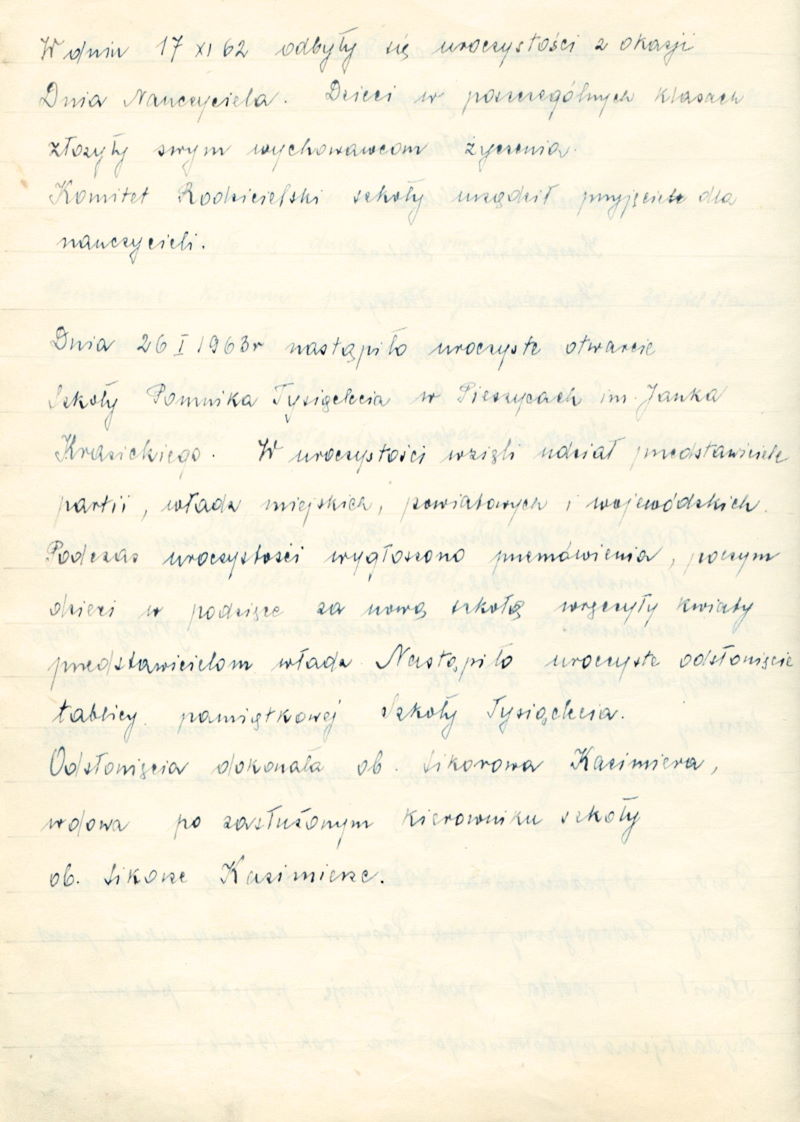 W dniu 17 XI 62 odbyły się uroczystości z okazji
Dnia Nauczyciela. Dzieci w poszczególnych klasach
złożyły swym wychowawcom życzenia.
Komitet Rodzicielski szkoły urządził przyjęcie dla
nauczycieli.
Dnia 26 I 1963r nastąpiło uroczyste otwarcie
Szkoły Pomnika Tysiąclecia w Pieszycach im. Janka
Krasickiego. W uroczystości wzięli udział przedstawiciele
partii, władz miejskich, powiatowych i wojewódzkich.
Podczas uroczystości wygłoszono przemówienia, poczym
dzieci w podzięce za nową szkołę wręczyły kwiaty
przedstawicielom władz. Nastąpiło uroczyste odsłonięcie
tablicy pamiątkowej Szkoły Tysiąclecia.
Odsłonięcia dokonała ob. Sikorowa Kazimiera,
wdowa po zasłużonym kierowniku szkoły
ob. Sikorze Kazimierze.